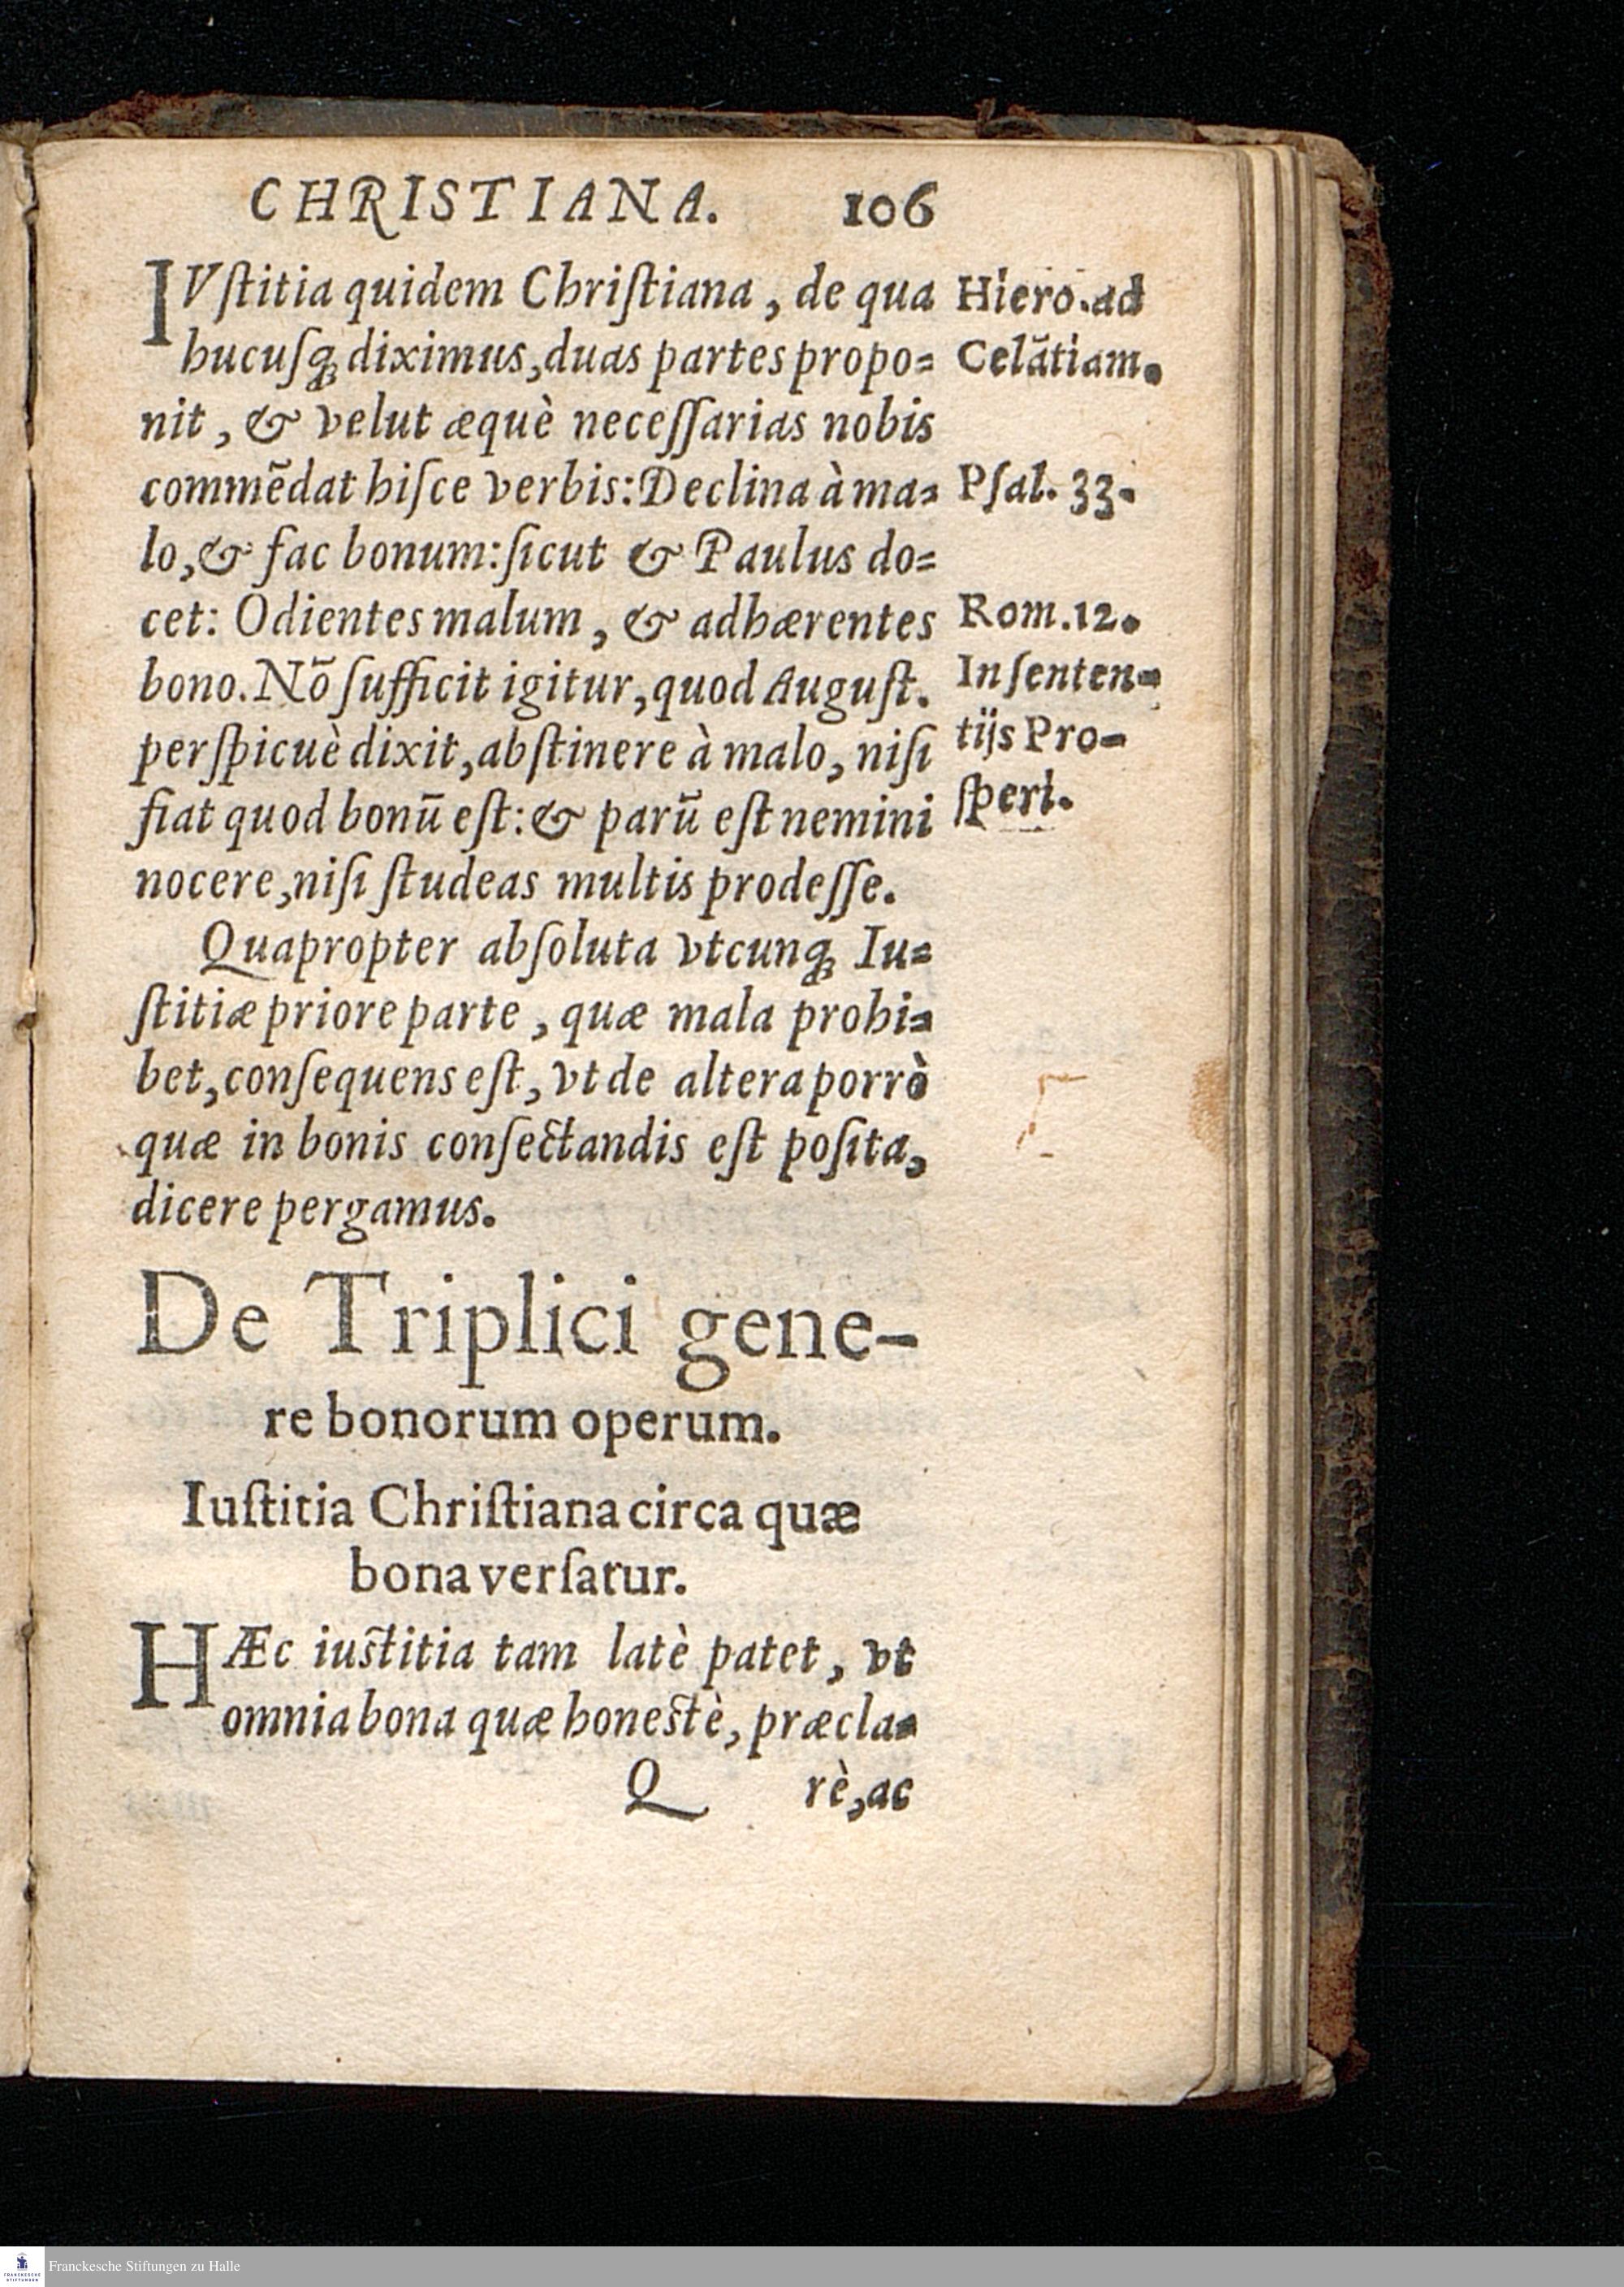 CHRISTIANA. 106
IVſtitia quidem Chriſtiana, de qua
hucuſq; diximus, duas partes propo=
nit, & velut æquè neceſſarias nobis
commẽdat hiſce verbis: Declina à ma=
lo, & fac bonum: ſicut & Paulus do=
cet: Odientes malum, & adhærentes
bono. Nõ ſufficit igitur, quod Auguſt.
perſpicuè dixit, abſtinere à malo, niſi
fiat quod bonũ eſt: & parũ eſt nemini
nocere, niſi ſtudeas multis prodeſſe.
Quapropter abſoluta vtcunq; Iu=
ſtitiæ priore parte, quæ mala prohi=
bet, conſequens eſt, vt de altera porrò
quæ in bonis conſectandis eſt poſita,
dicere pergamus.
Hiero. ad
Celãtiam.
Pſal. 33.
Rom. 12.
In ſenten-
tijs Pro-
ſperi.
De Triplici gene-
re bonorum operum.
Iuſtitia Chriſtiana circa quæ
bona verſatur.
HÆc iuſtitia tam latè patet, vt
omnia bona quæ honeſtè, præcla=
Q rè, ac
Franckesche Stiftungen zu Halle
FRANCKESCHE
STIFTUNGEN